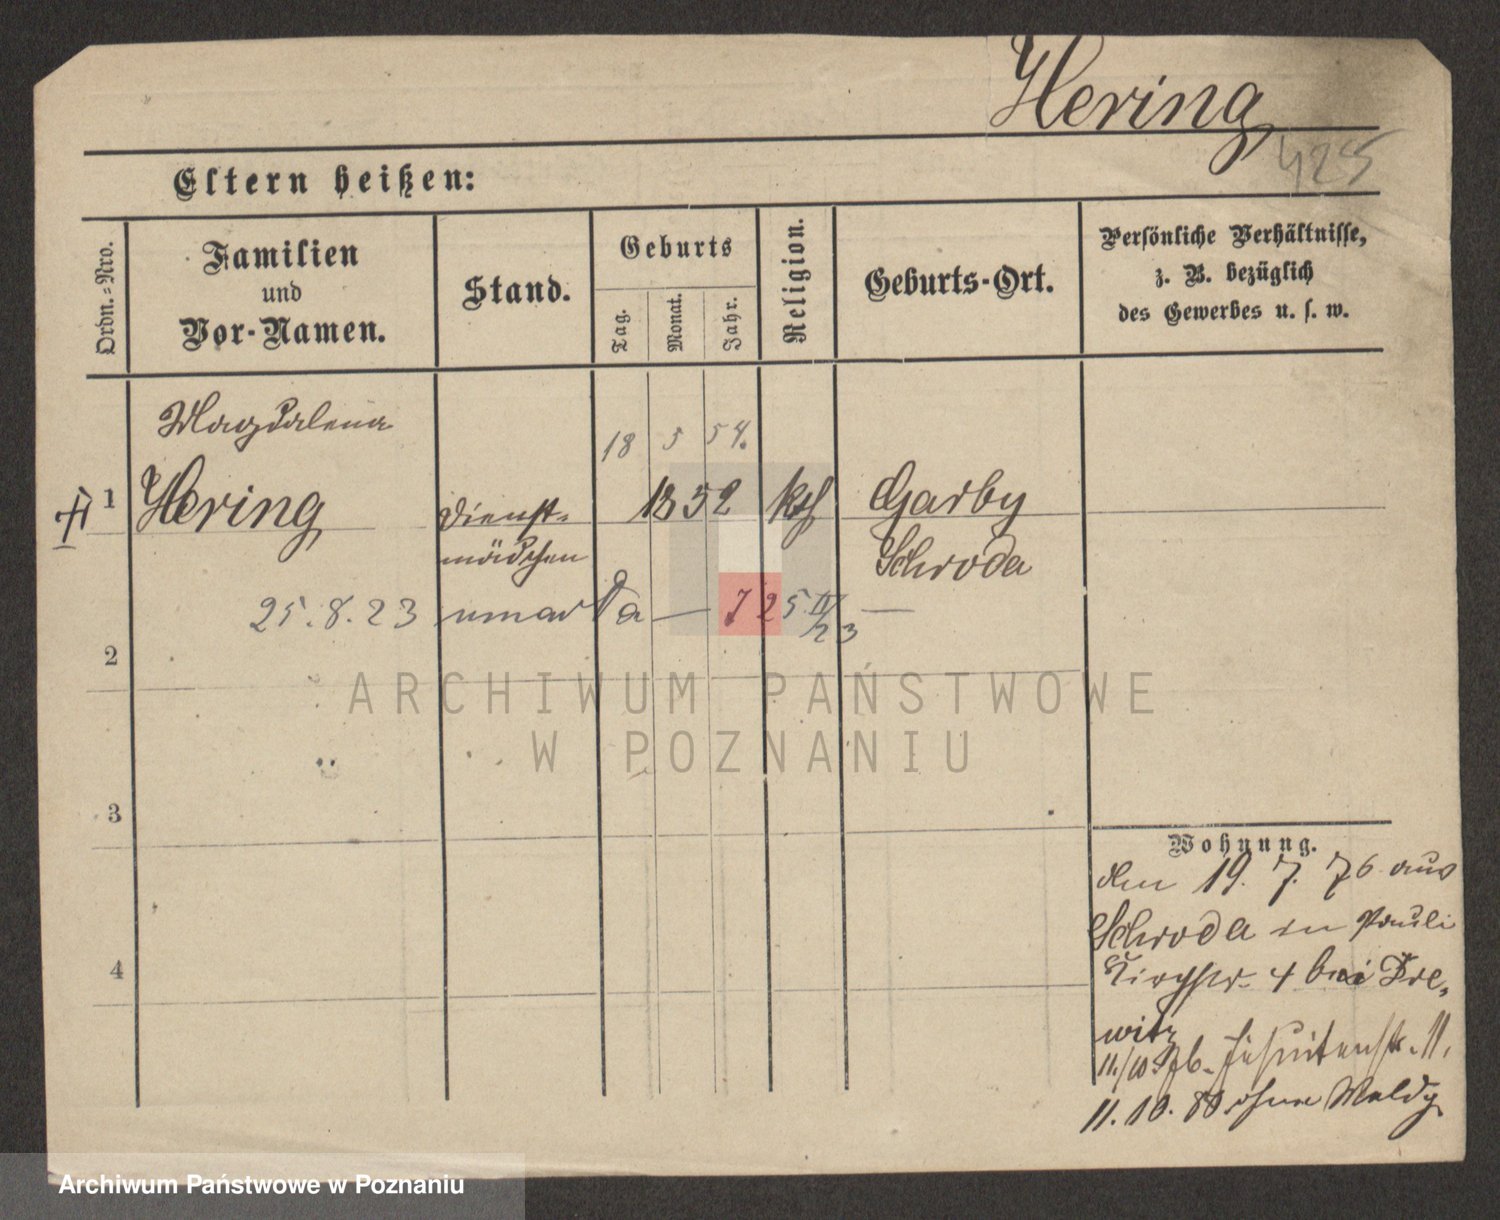 Hering
425
Eltern heißen:
Ordn.-Nro.
Familien
und
Vor-Namen.
Stand.
Geburts
Tag.
Monat.
Jahr.
Religion.
Geburts-Ort.
Persönliche Verhältnisse,
z. B. bezüglich
des Gewerbes u. s. w.
Magdalena
18 5 54.
1 Hering Dienst- 1852 kth Garby
mädchen Schroda
25.8.23 umarła — 725 IV/23 —
2
ARCHIWUM PAŃSTWOWE
W POZNANIU
3
Wohnung.
den 19. 7. 76 aus
Schroda in Pauli
Kirchstr. 4 bei Dre-
witz
11./10. Jesuitenstr. 11.
11. 10. 80 ohne Meldg
4
Archiwum Państwowe w Poznaniu